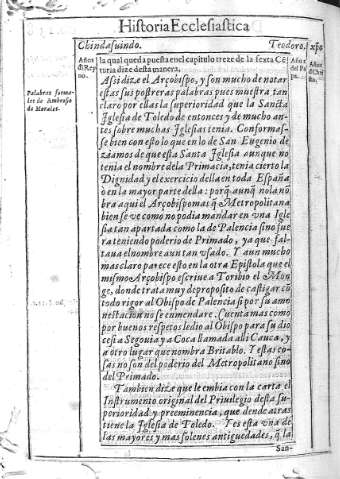 Historia Ecclesiastica
Chindasuindo.
Teodoro.
xpo
Años
di Rey
no.
Años
del Pa
pa.
Años
di Chri
sto.
Palabras forma-
les de Ambrosio
de Morales.
la qual queda puesta en el capitulo treze de la sexta Cē
turia dize desta manera.
Assi dize el Arçobispo, y son mucho de notar
estas sus postreras palabras pues muestra tan
claro por ellas la superioridad que la Sancta
Iglesia de Toledo de entonces y de mucho an-
tes sobre muchas Iglesias tenia. Conformas-
se bien con esto lo que en lo de San Eugenio de
ziamos de que esta Santa Iglesia aunque no
tenia el nombre dela Primacia, tenia cierto la
Dignidad y el exercicio della en toda España
o en la mayor parte della: porq̃ aunq̃ nola nō
bra aqui el Arçobispo mas q̃ Metropolitana
bien se ve como no podia mandar en vna Igle
sia tan apartada como la de Palencia sino fue
ra teniendo poderio de Primado, ya que fal-
taua el nombre aun tan vsado. Y aun mucho
mas claro parece esto en la otra Epistola que el
mismo Arçobispo escriue a Toribio el Mon
ge, donde trata muy de proposito de castigar cō
todo rigor al Obispo de Palencia si por su amo
nestacion no se enmendare. Cuenta mas como
por buenos respetos le dio al Obispo para su dio
cesi a Segouia y a Coca llamada alli Cauca, y
a otro lugar que nombra Britablo. Y estas co-
sas no son del poderio del Metropolitano sino
del Primado.
Tambien dize que le embia con la carta el
Instrumento original del Priuilegio desta su-
perioridad y preeminencia, que dende atras
tiene la Iglesia de Toledo. Y es esta vna de
las mayores y mas solenes antiguedades, q̃ la
San-